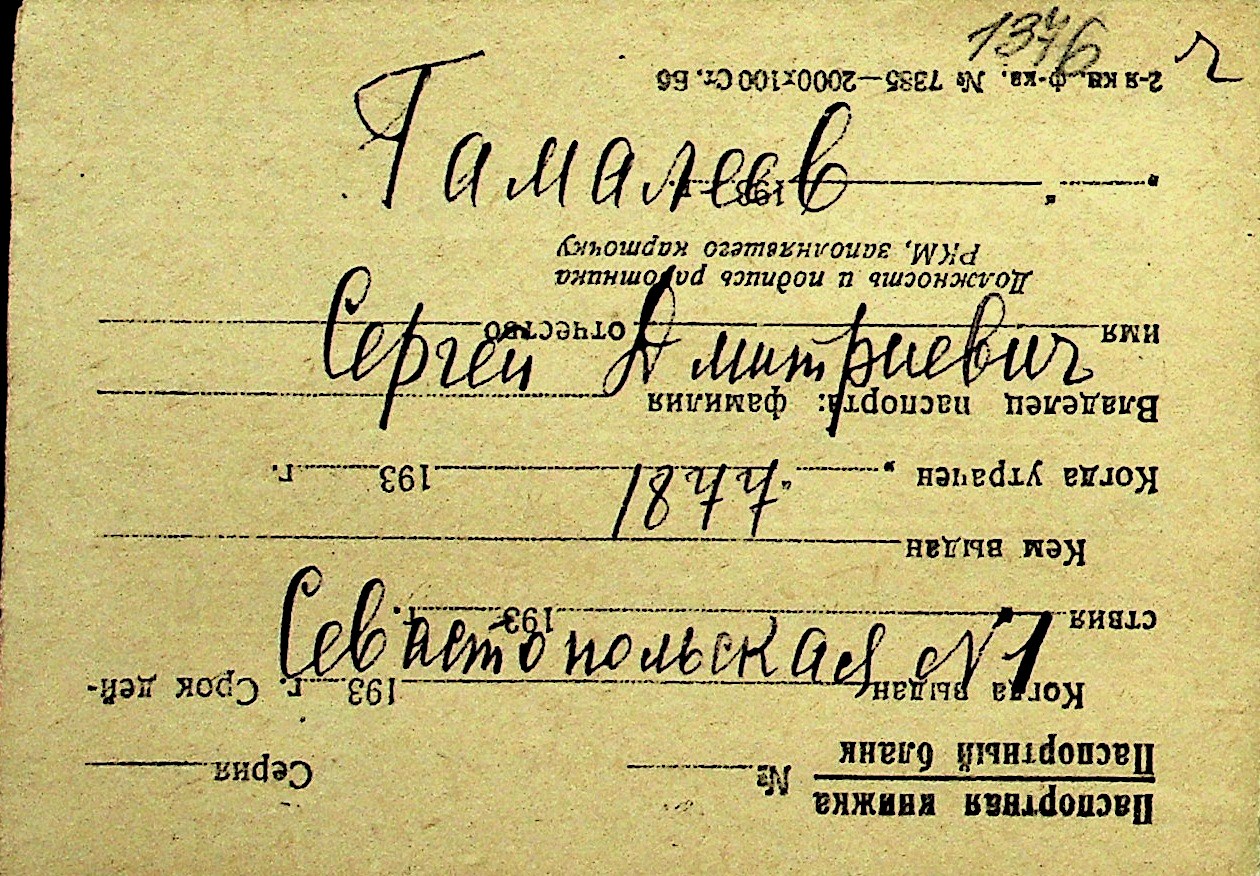 1376 ч
Гамалеев
Сергей Дмитриевич
1877
Севастопольская №1
Паспортная книжка
Паспортный бланк
№ Серия
Когда выдан 193 г. Срок дей-
ствия 193 г.
Кем выдан
Когда утрачен „ “ 193 г.
Владелец паспорта: фамилия
имя отчество
Должность и подпись работника
РКМ, заполнявшего карточку
„ “ 193 г.
2-я кв. ф-ка. № 7385—2000х100 Ст. Б6